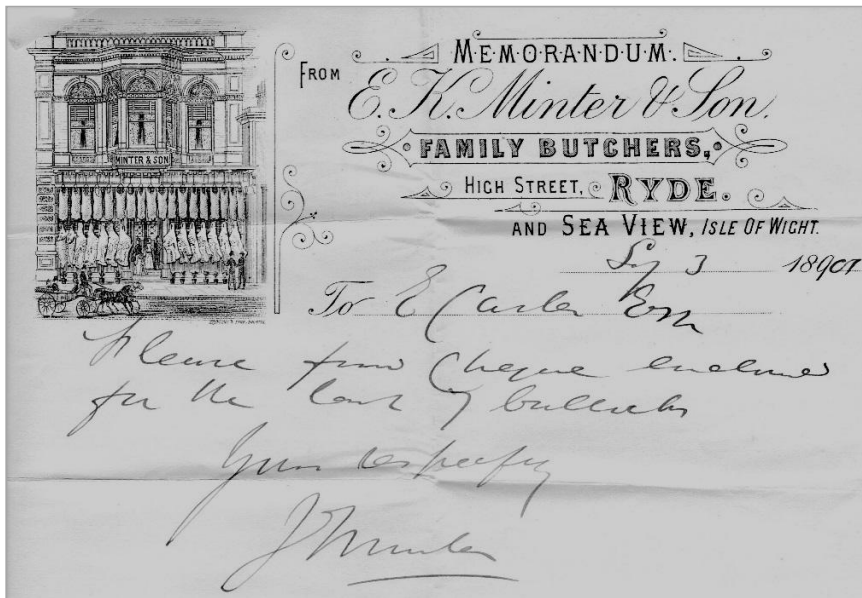 MEMORANDUM.
FROM
E. K. Minter & Son.
FAMILY BUTCHERS,
HIGH STREET, RYDE.
AND SEA VIEW, ISLE OF WIGHT.
3 1890
MINTER & SON
To E Carter Esq
Please find Cheque enclosed
for the last of bullocks
Yours respectfully
J Minter